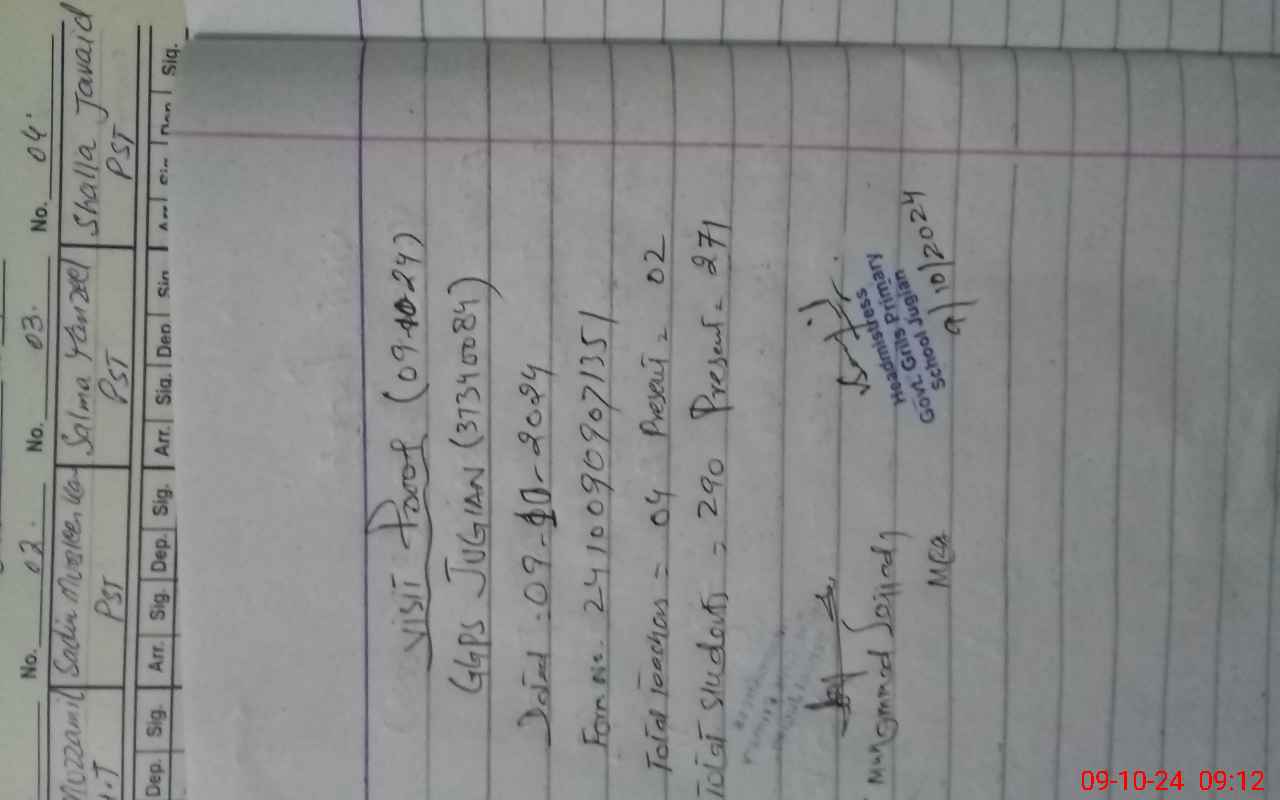 No. 02. No. 03. No. 04.
Mozzamil Sadia Salma Shalla Javaid
PST PST PST
Dep. Sig. Arr. Sig. Dep. Sig. Arr. Sig. Dep Sig. Sig.
VISIT Proof (09-10-24)
GGPS JUGIAN (37340084)
Dated : 09-10-2024
Form No. 24100909071351
Total Teachers = 04 Present = 02
Total Students = 290 Present = 271
Muhammad Sajjad
MEA
Headmistress
Govt. Grils Primary
School Jugian
9/10/2024
09-10-24 09:12